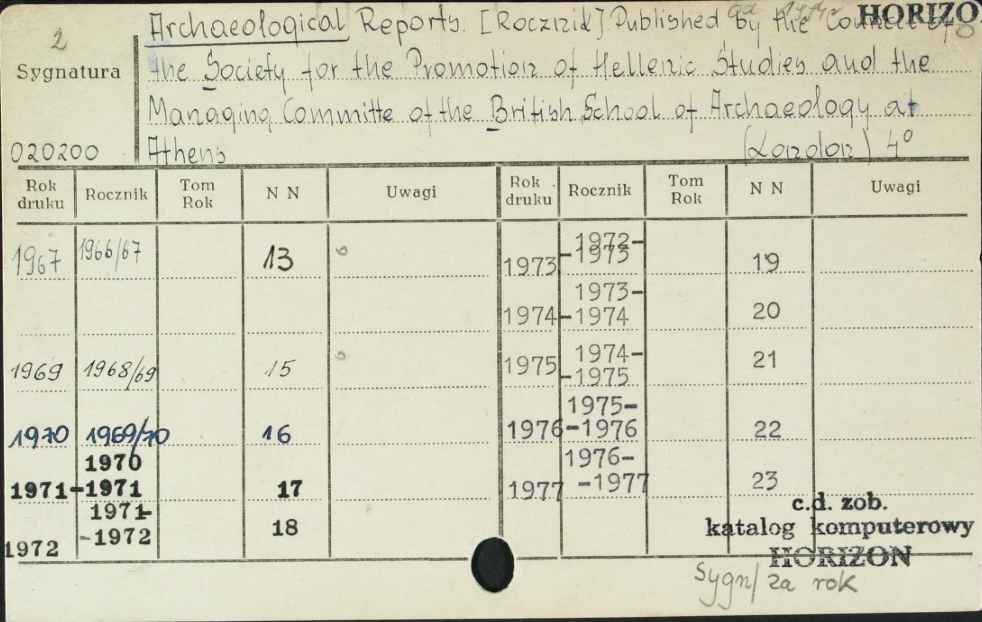 2
Archaeological Reports. [Rocznik] Published by the Council of
HORIZO
Sygnatura
the Society for the Promotion of Hellenic Studies and the
Managing Committe of the British School of Archaeology at
020200
Athens (London) 4°
Rok druku Rocznik Tom Rok N N Uwagi Rok druku Rocznik Tom Rok N N Uwagi
1967 1966/67 13
1969 1968/69 15
1970 1969/70 16
1971 1970-1971 17
1972 1971-1972 18
1973 1972-1973 19
1974 1973-1974 20
1975 1974-1975 21
1976 1975-1976 22
1977 1976-1977 23
c.d. zob.
katalog komputerowy
HORIZON
Sygn/ za rok